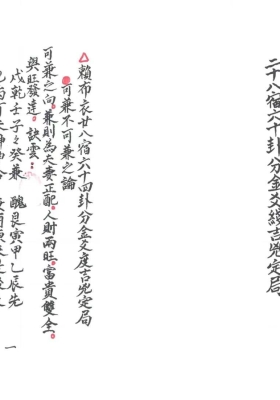 二十八宿六十卦分金爻线吉兇定局
賴布衣廿八宿六十四卦分金爻度吉兇定局
可兼不可兼之論
可兼之向，兼則為夫妻正配，人財兩旺，富貴雙全。
與旺發達。訣雲：
戌乾壬子々癸兼 醜艮寅甲乙辰先
一